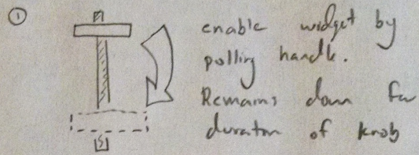 ①
enable widget by
pulling handle.
Remains down for
duration of knob